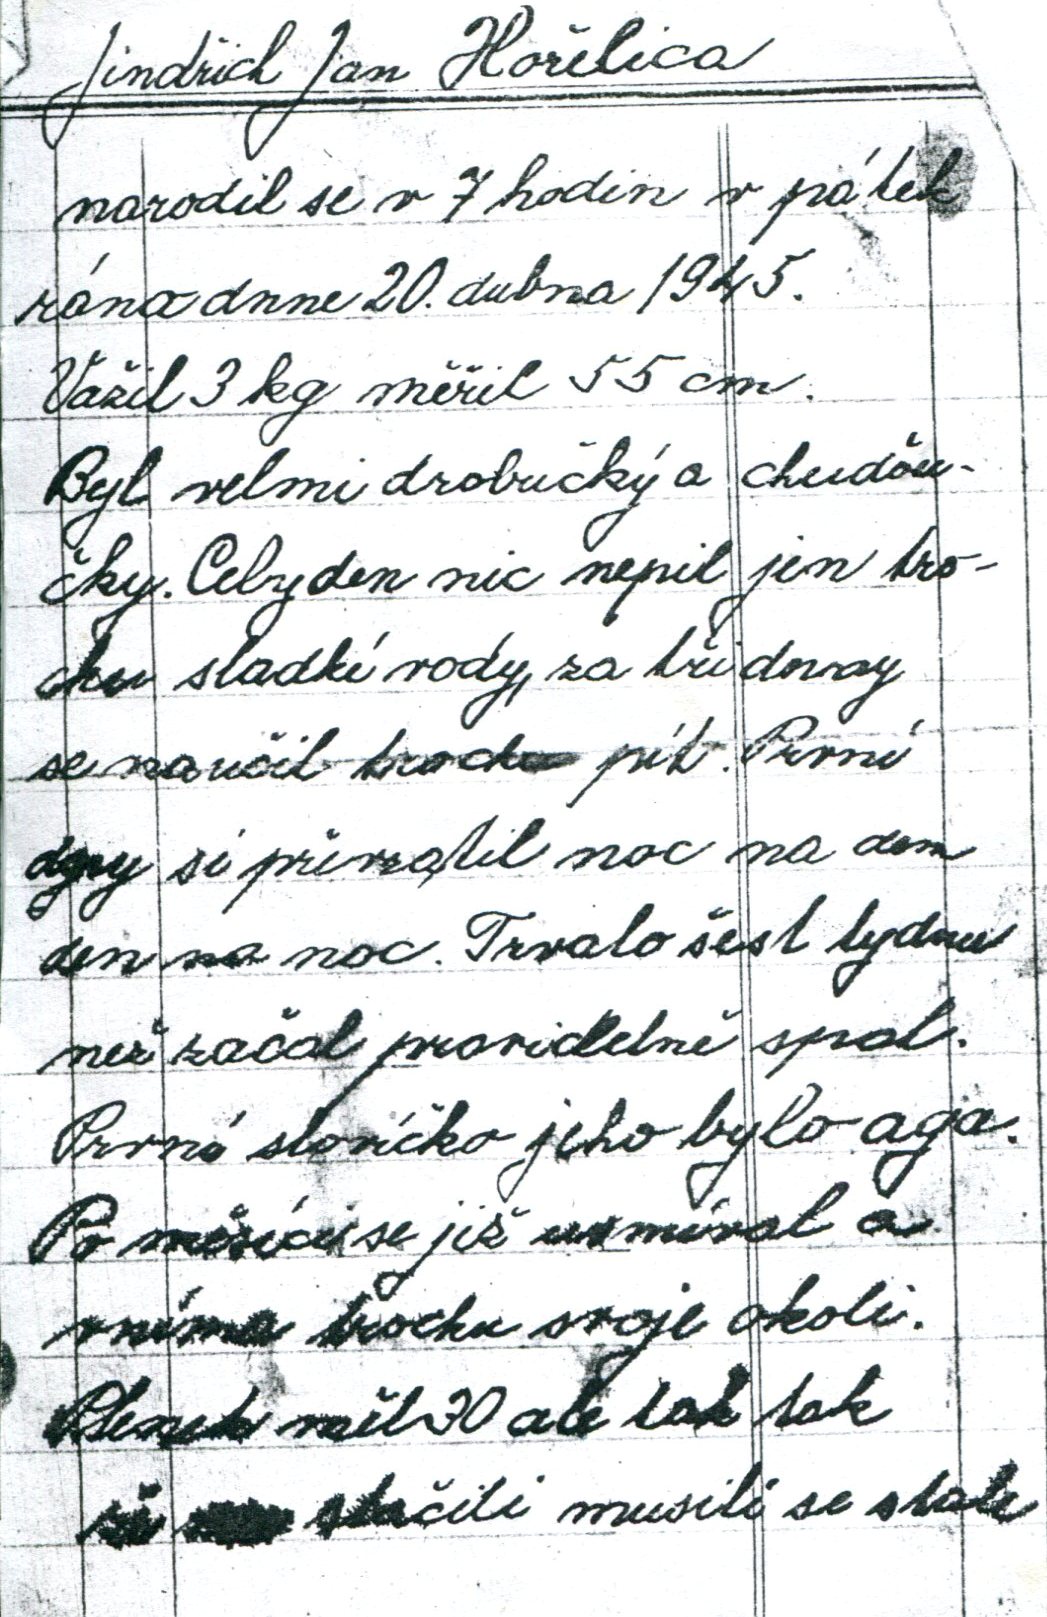 Jindřich Jan Hořelica
narodil se v 7 hodin v pátek
ráno dnne 20. dubna 1945.
Vážil 3 kg měřil 55 cm.
Byl velmi drobučký a chudou-
čky. Cely den nic nepil jen tro-
chu sladké vody, za tři dny
se naučil trochu pít. První
dny si převrátil noc na den
den na noc. Trvalo šest tydnu
než začal pravidelně spat.
První slovíčko jeho bylo aga.
Po měsíci se již usmíval a
vníma trochu svoje okoli.
Plenek měl 30 ale tak tak
že stačili museli se stale